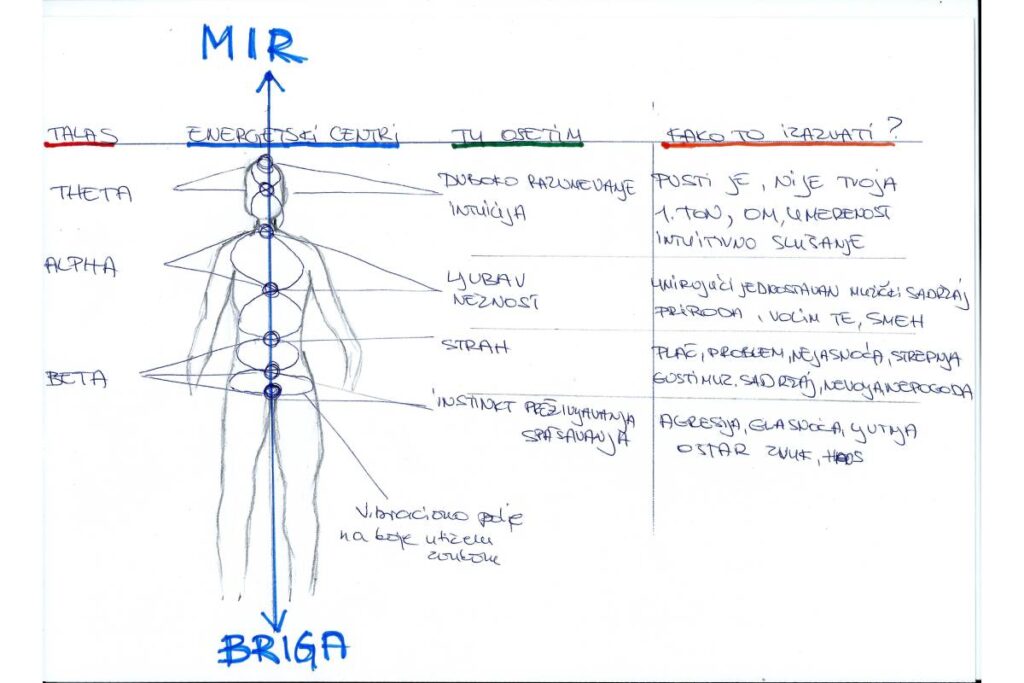 MIR
TALAS ENERGETSKI CENTRI TU OSETIM KAKO TO IZAZVATI?
THETA
DUBOKO RAZUMEVANJE
INTUICIJA
PUSTI JE, NIJE TVOJA
1. TON, OM, UMERENOST
INTUITIVNO SLUŠANJE
ALPHA
LJUBAV
NEŽNOST
UMIRUJUĆI JEDNOSTAVAN MUZIČKI SADRŽAJ
PRIRODA, VOLIM TE, SMEH
BETA
STRAH
PLAČ, PROBLEM, NEJASNOĆA, STREPNJA
GUSTI MUZ. SADRŽAJ, NEVOLJA NEPOGODA
INSTINKT PREŽIVLJAVANJA
SPAŠAVANJA
AGRESIJA, GLASNOĆA, LJUTNJA
OŠTAR ZVUK, HAOS
Vibraciono polje
na koje utičem
zvukom
BRIGA